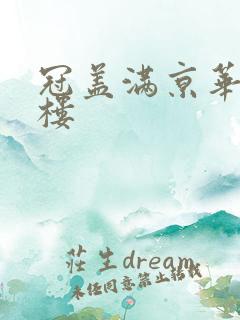 冠盖满京华
楼
莊生dream
未经同意禁止转载